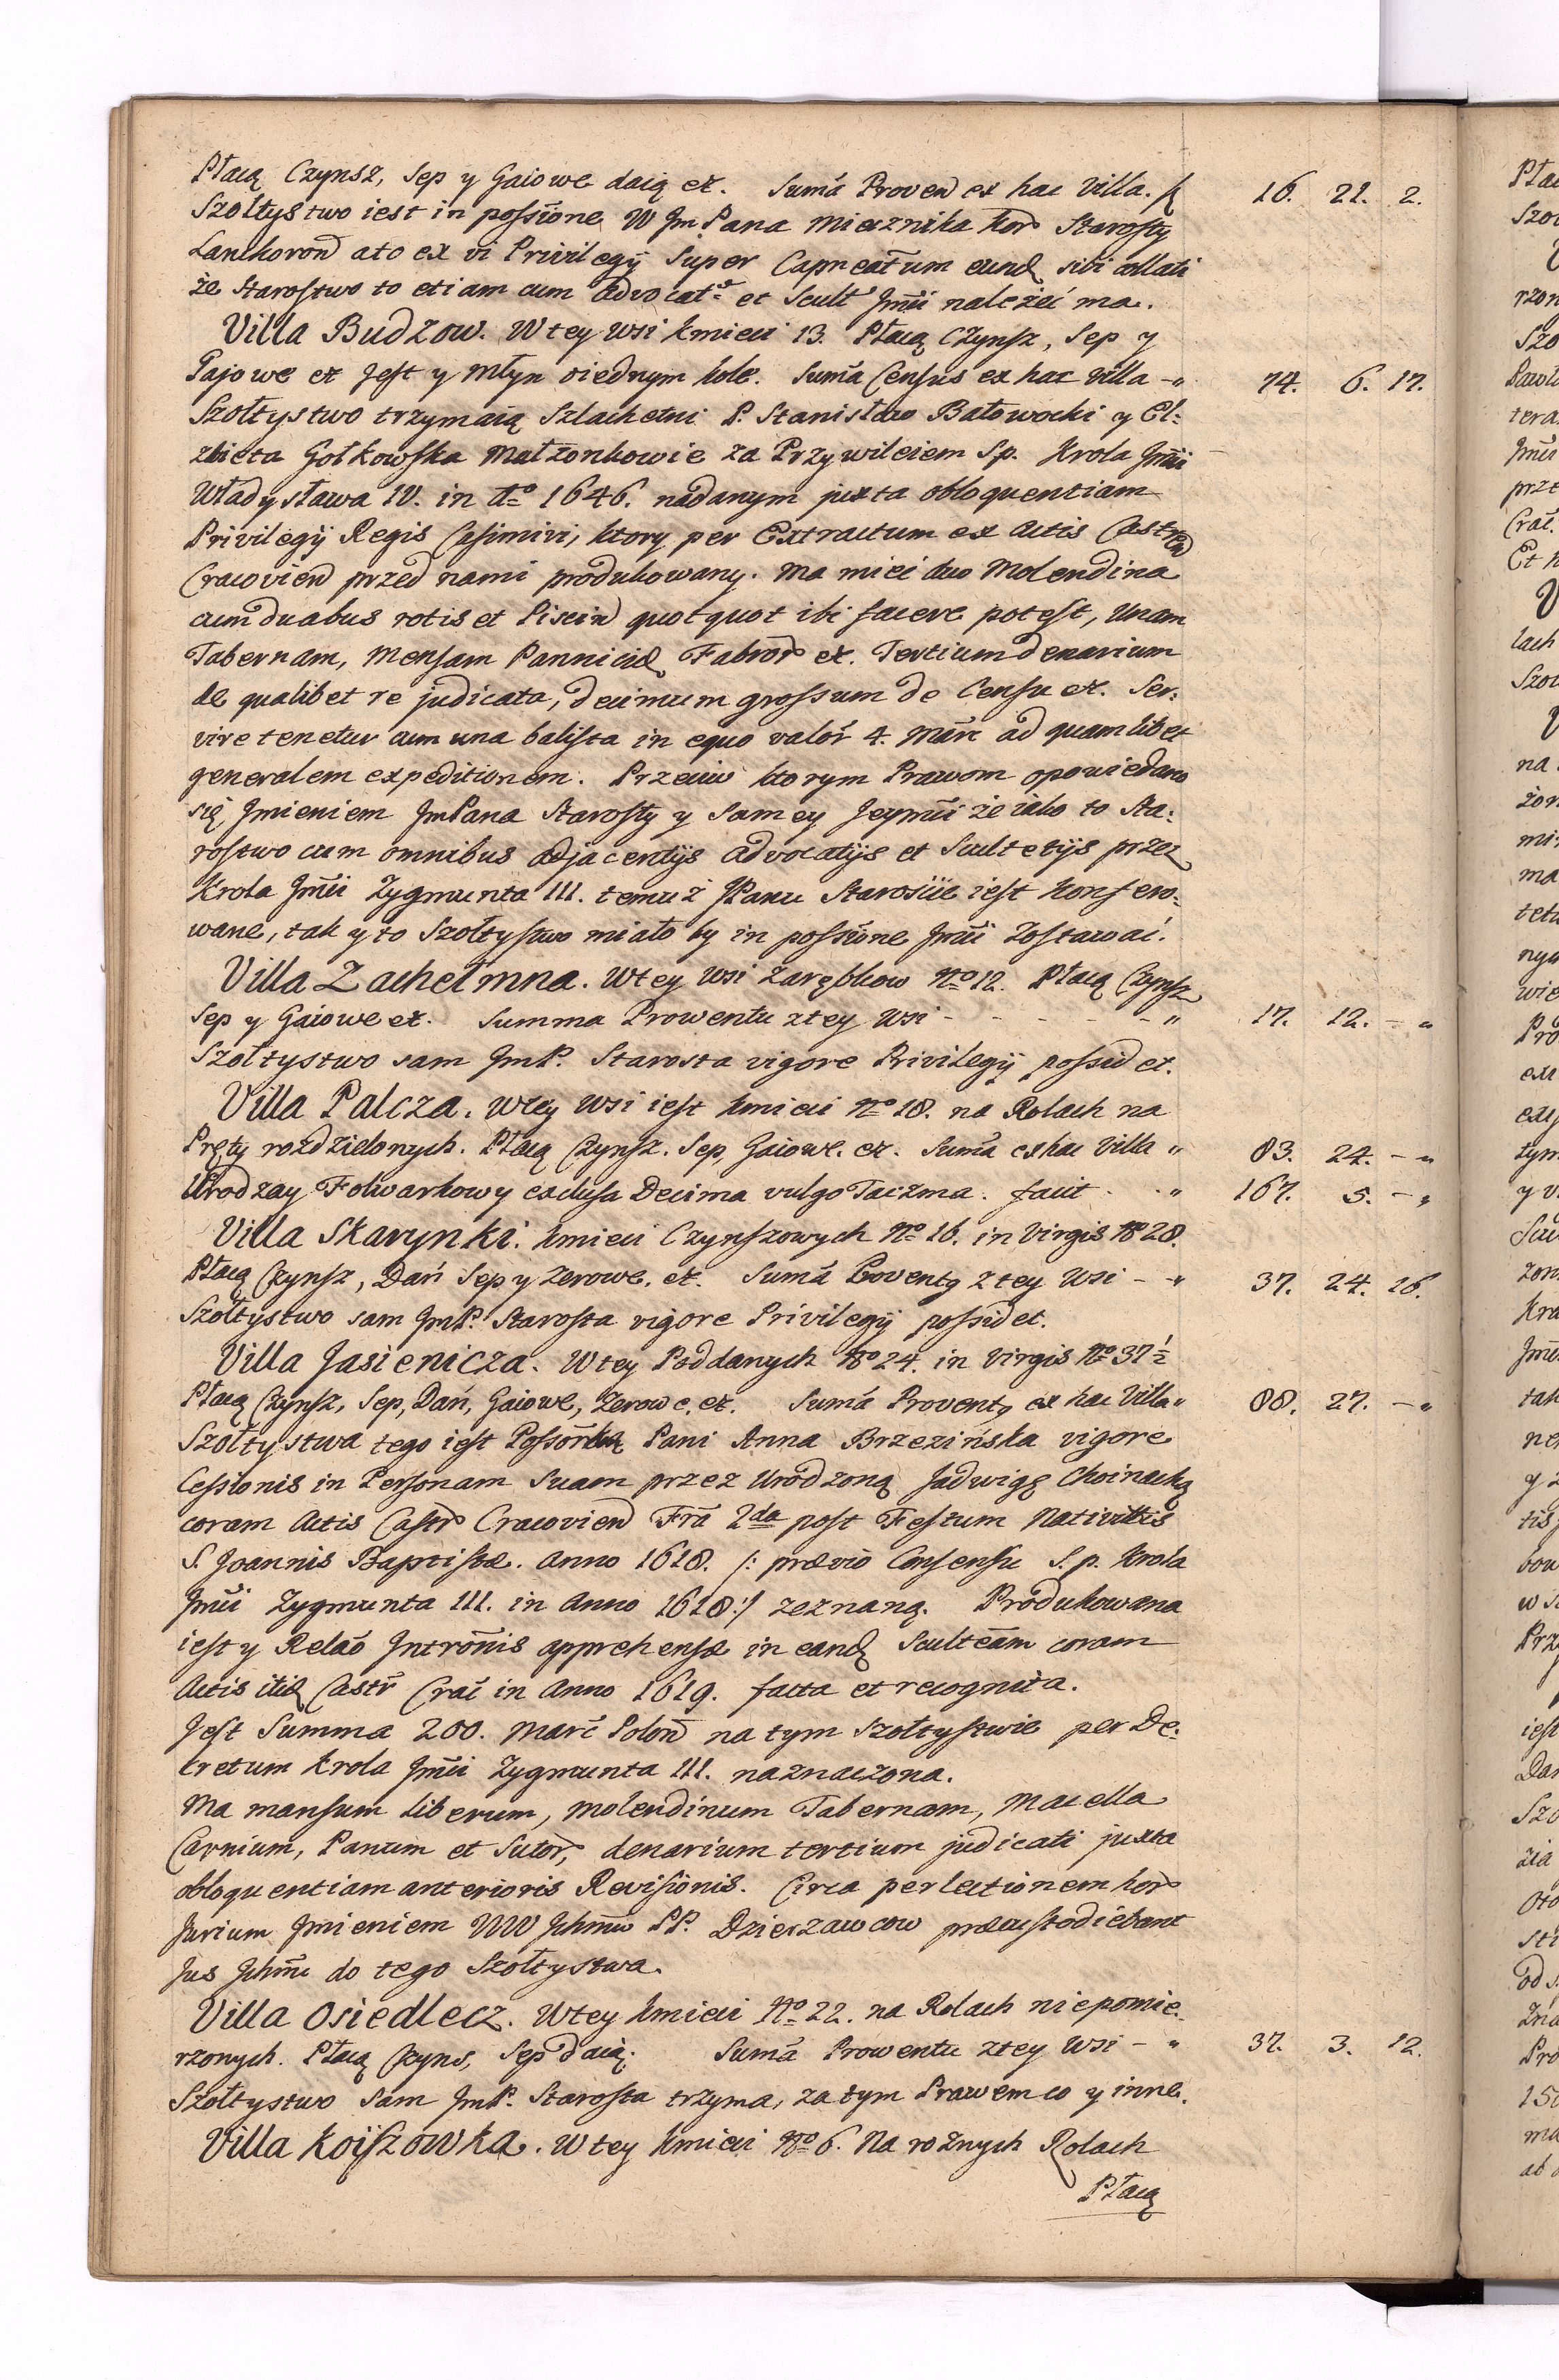 Płacą Czynsz, Sep y Gaiowe daią etc. Sum̃a Proven̄ ex hac Villa. f 16. 21. 2.
Szołtystwo iest in possione W Jm Pana Miecznika Kor̃ Starosty
Lanckoron̄ ato ex vi Privilegij Super Capneatum eund sibi collati
że Starostwo to etiam cum Advocat et Scult Jm̃ci należeć ma.
Villa Budzow. W tey Wsi Kmieci 13. Płacą Czynsz, Sep y
Gajowe etc Jest y Młyn o iednym kole. Sum̃a Census ex hac Villa - " 74. 6. 17.
Szołtystwo trzymaią Szlachetni P. Stanisław Batowocki y El=
zbieta Gołkowska Małżonkowie za Przywileiem Sp. Krola Jm̃ci
Władysława IV. in Ao 1646. nadanym juxta obloquentiam
Privilegij Regis Casimiri, ktory per Extractum ex Actis Castren
Cracovien̄ przed nami produkowany. Ma mieć duo Molendina
cum duabus rotis et Piscin̄ quotquot ibi facere potest, Unam
Tabernam, Mensam Pannicid Fabror̄ etc. Tertium denarium
de qualibet re judicata, decimum grossum de Censu etc. Ser=
vire tenetur cum una balista in equo valor̃ 4. Mar̃c ad quamlibet
generalem expeditionem. Przeciw ktorym Prawom opowiedano
się Jmieniem JmPana Starosty y Samey Jeym̃ci że iako to Sta=
rostwo cum omnibus adjacentijs Advocatijs et Scultetijs przez
Krola Jm̃ci Zygmunta III. temuż JPanu Starosiie iest konfero=
wane, tak y to Szołtystwo miało by in possione Jm̃ci Zostawać.
Villa Zachełmna. W tey Wsi Zarębkow No 12. Płacą Czynsz
Sep y Gaiowe etc. Summa Prowentu z tey Wsi - - - - - - " 17. 12. - "
Szołtystwo sam JmP. Starosta vigore Privilegij possidet.
Villa Palcza. W tey Wsi iest Kmieci No 18. na Rolach na
Pręty rozdzielonych. Płacą Czynsz. Sep, Gaiowe. etc. Sum̃a ex hac Villa " 83. 24. - "
Urodzay Folwarkowy exclusa Decima vulgo Taczma. facit . . " 167. 5. - "
Villa Skarynki. Kmieci Czynszowych No 16. in Virgis No 28.
Płacą Czynsz, Dań Sep y Zerowe. etc. Sum̃a Proventg z tey Wsi - " 37. 24. 16.
Szołtystwo sam JmP. Starosta vigore Privilegij possidet.
Villa Jasienicza. W tey Poddanych No 24. in Virgis No 37½
Płacą Czynsz, Sep, Dań, Gaiowe, Zerowe, etc. Sum̃a Proventg ex hac Villa " 88. 27. - "
Szołtystwa tego iest Possor̃ką Pani Anna Brzezińska vigore
Cessionis in Personam Suam przez Urodzoną Jadwigę Choinacką
coram Actis Castr̃ Cracovien̄ Fr̃a 2da post Festum Nativittis
S. Joannis Baptistæ. Anno 1618. /: prævio Consensu S. p. Krola
Jm̃ci Zygmunta III. in Anno 1618:/ zeznaną. Produkowana
iest y Relac̃o Intron̄is apprehensæ in eand Scultec̃am coram
Actis itid Castr̃ Crac̃ in Anno 1619. facta et recognita.
Jest Summa 200. Marc̃ Polon̄ na tym Szołtystwie per De=
cretum Krola Jm̃ci Zygmunta III. naznaczona.
Ma mansum liberum, molendinum Tabernam, Macella
Carnium, Panum et Sutor̃, denarium tertium judicati juxta
obloquentiam anterioris Revisionis. Circa perlectionem hor̃
Jurium Jmieniem WW Jchm̃ PP. Dzierzawcow præcustodiebant
Jus Jchm̃ do tego Szołtystwa.
Villa Osiedlecz. W tey Kmieci No 22. na Rolach niepomie=
rzonych. Płacą Czyns, Sep daią. Sum̃a Prowentu z tey Wsi - " 37. 3. 12.
Szołtystwo Sam JmP. Starosta trzyma, za tym Prawem co y inne.
Villa Koiszowka. W tey Kmieci No 6. Na rożnych Rolach
Płacą